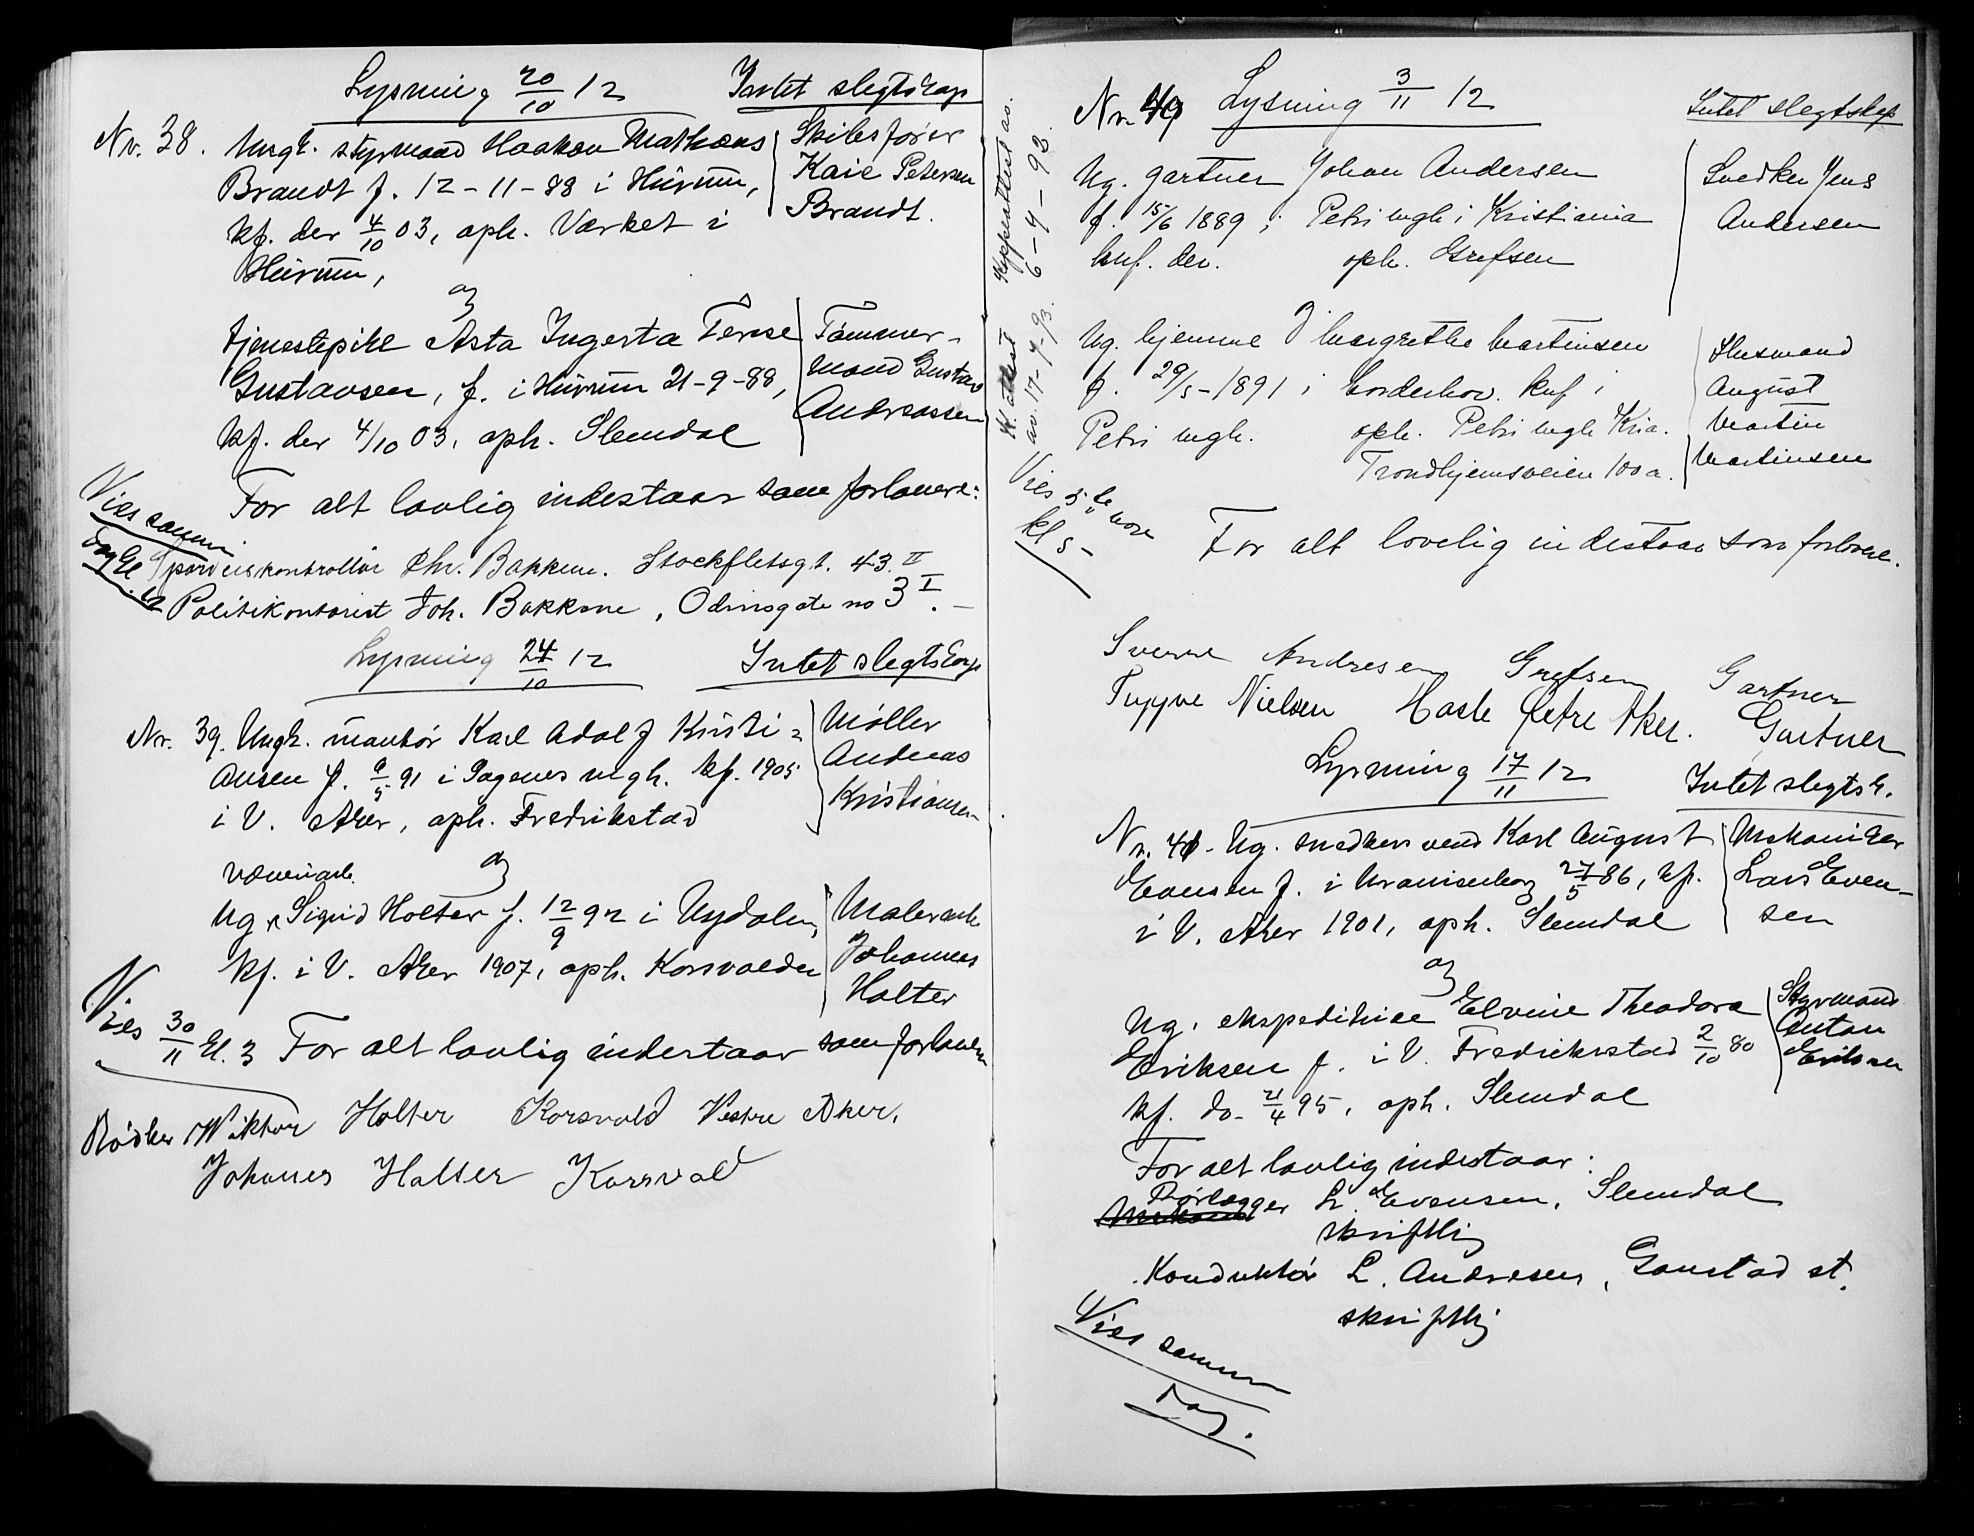 Lysning 20/10 12 Intet slegtskap
Nr. 38. Ungk. styrmand Haakon Mathæus
Brandt f. 12-11-88 i Hurum,
kf. der 4/10 03, oph. Værket i
Hurum,
Skibsfører
Kaie Petersen
Brandt.
og
tjenestepike Asta Ingerta Terese
Gustavsen, f. i Hurum 21-9-88,
kf. der 4/10 03, oph. Slemdal
Tømmer-
mand Gustav
Andreassen
For alt lovlig indestaar som forlovere:
Vies samme
dag kl.
Sporveiskontrollør Chr. Bakkene. Stockfletsgt. 43 II
Politikontorist Joh. Bakkene, Odinsgate no 3 I. -
Lysning 24/10 12 Intet slegtskap
Nr. 39. Ungk. montør Karl Adolf Kristi-
ansen f. 9/5 91 i Pagenes mgh. kf. 1905
i V. Aker, oph. Fredrikstad
Møller
Andreas
Kristiansen
og
væveriarb.
Ug. Sigrid Holter f. 12/9 92 i Nydalen,
kf. i V. Aker 1907, oph. Korsvolden
Malerarb
Johannes
Holter
Vies 30/11 kl. 3 For alt lovlig indestaar som forlovere
Rødker Wiktor Holter Korsvold Vestre Aker.
Johanes Holter Korsvold
K. attest
av 17-7-93.
Koppeattest av.
6-9-93.
Nr. 40 Lysning 3/11 12 Intet slegtskap
Ug. gartner Johan Andersen
f. 15/6 1889 i Petri mgh i Kristiania
knf. der. oph. Grefsen
Snedker Jens
Andersen
Ug. hjemme Margrethe Martinsen
f. 29/5-1891 i Norderhov. knf i
Petri mgh. oph. Petri mgh Kria.
Trondhjemsveien 100 a.
Husmand
August
Martin
Martinsen
Vies 5te
kl 5-
For alt lovelig indestaar som forlovere.
Sverre Andresen Grefsen Gartner
Trygve Nielsen Hasle Østre Aker. Gartner
Lysning 17/11 12 Intet slegtsk.
Nr. 41. Ug. snedkersvend Karl August
Evensen f. i Uranienborg 27/5 86, kf.
i V. Aker 1901, oph. Slemdal
Mekaniker
Lars Even-
sen
og
Ug. ekspeditrice Elvine Theodora
Eriksen f. i V. Fredrikstad 2/10 80
kf. do. 21/4 95, oph. Slemdal
Styrmand
Anton
Eriksen
For alt lovlig indestaar:
Rørlægger L. Evensen, Slemdal
skriftlig
Konduktør L. Andresen, Gaustad st.
skriftlig
Vies samme
dag.